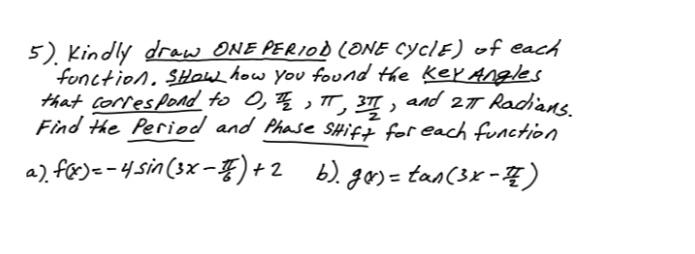 5). Kindly draw ONE PERIOD (ONE CyclE) of each
function. SHow how you found the KEY Angles
that correspond to 0, π/2, π, 3π/2, and 2π Radians.
Find the Period and Phase SHift for each function
a). f(x)=-4 sin(3x-π/6)+2 b). g(x)=tan(3x-π/2)